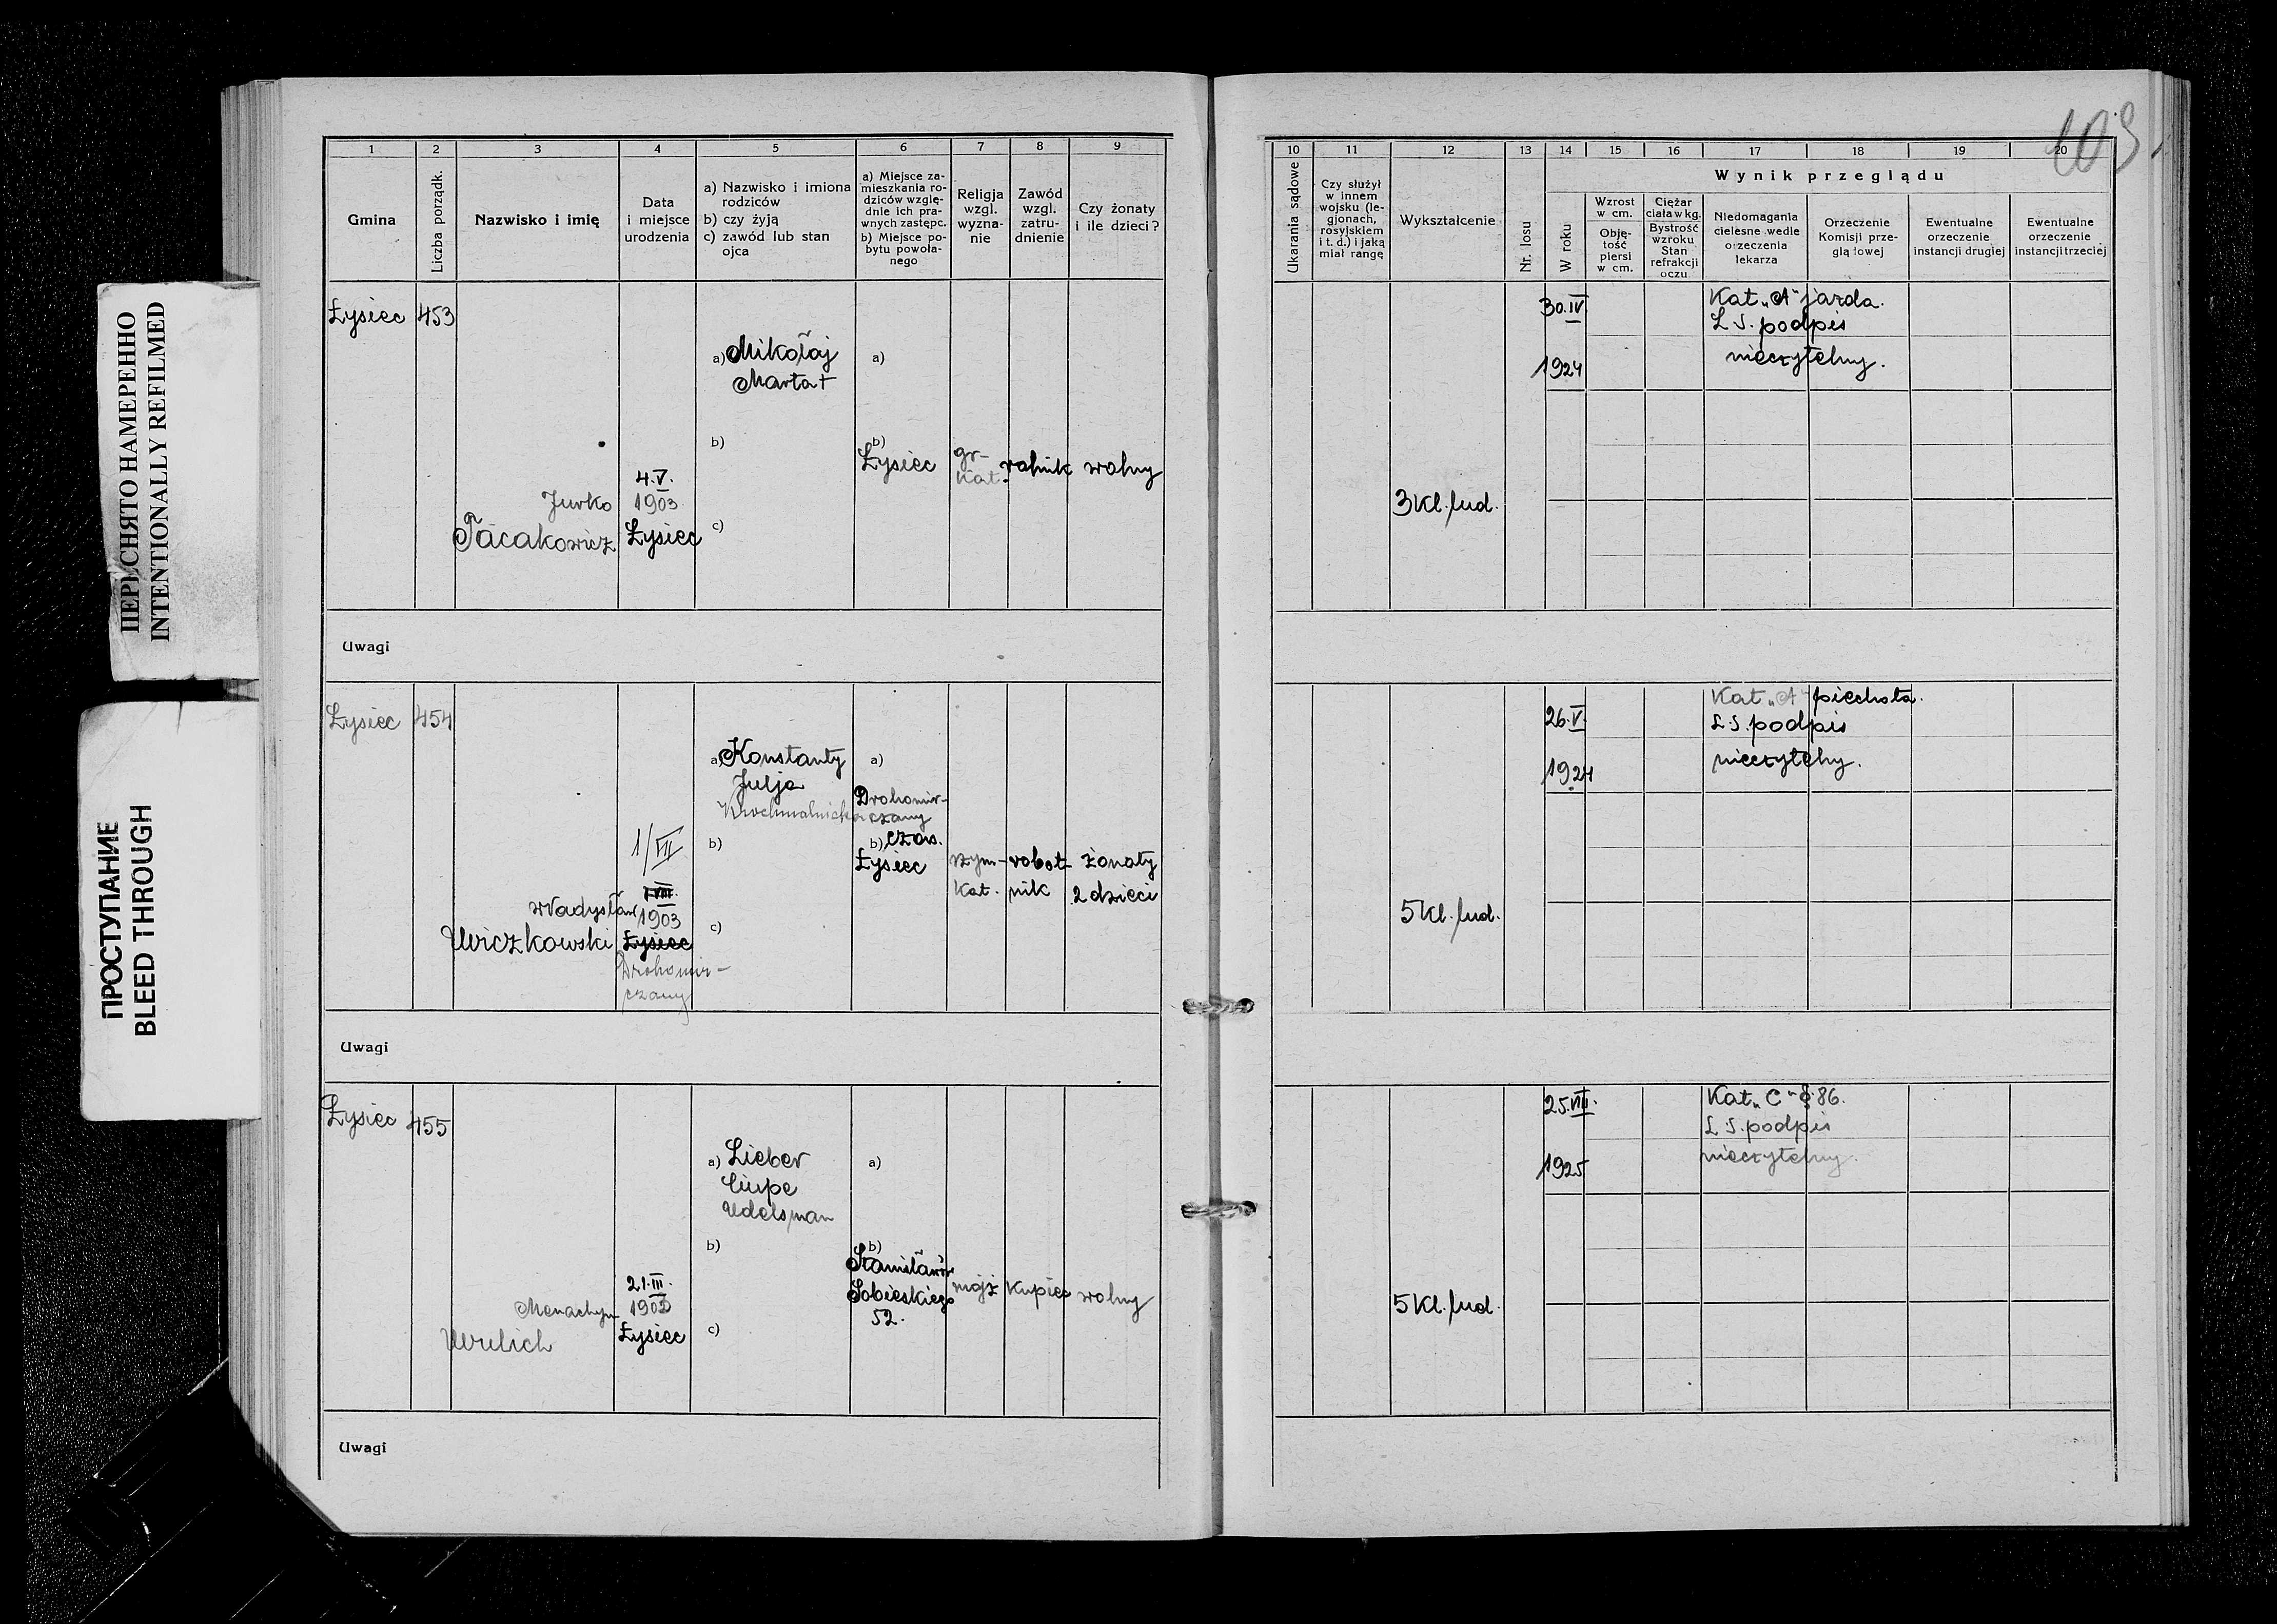 103
ПЕРЕСНЯТО НАМЕРЕННО
INTENTIONALLY REFILMED
ПРОСТУПАНИЕ
BLEED THROUGH
1 2 3 4 5 6 7 8 9
Gmina
Liczba porządk.
Nazwisko i imię
Data
i miejsce
urodzenia
a) Nazwisko i imiona
rodziców
b) czy żyją
c) zawód lub stan
ojca
a) Miejsce za-
mieszkania ro-
dziców wzglę-
dnie ich pra-
wnych zastępc.
b) Miejsce po-
bytu powoła-
nego
Religja
wzgl.
wyzna-
nie
Zawód
wzgl.
zatru-
dnienie
Czy żonaty
i ile dzieci?
10 11 12 13 14 15 16 17 18 19 20
Ukarania sądowe
Czy służył
w innem
wojsku (le-
gjonach,
rosyjskiem
i t. d.) i jaką
miał rangę
Wykształcenie
Nr. losu
Wynik przeglądu
W roku
Wzrost
w cm.
Obję-
tość
piersi
w cm.
Ciężar
ciała w kg.
Bystrość
wzroku
Stan
refrakcji
oczu
Niedomagania
cielesne wedle
orzeczenia
lekarza
Orzeczenie
Komisji prze-
glądowej
Ewentualne
orzeczenie
instancji drugiej
Ewentualne
orzeczenie
instancji trzeciej
Łysiec 453
Jurko
4.V.
1903
Łysiec
a) Mikołaj
Marta +
b)
c)
a)
b)
Łysiec
gr-
kat.
rolnik
wolny
3 kl. lud.
30.IV
1924
Kat „A" jazda.
L.S. podpis
nieczytelny.
Uwagi
Łysiec 454
Władysław
Uwiczkowski
1/VII
1903
Łysiec
Drohomir-
czany
a) Konstanty
Julja
Krochmalnicka
b)
c)
a)
Drohomir-
czany
b) czas.
Łysiec
rzym-
kat.
robot-
nik
żonaty
2 dzieci
5 kl. lud.
26.V.
1924
Kat „A" piechota.
L.S. podpis
nieczytelny.
Uwagi
Łysiec 455
Menachym
21.III.
1903
Łysiec
a) Lieber
Udelsman
b)
c)
a)
b)
Stanisławów
Sobieskiego
52.
mojż
kupiec
wolny
5 kl. lud.
25.VIII.
1925
Kat „C" § 86.
L.S. podpis
nieczytelny.
Uwagi